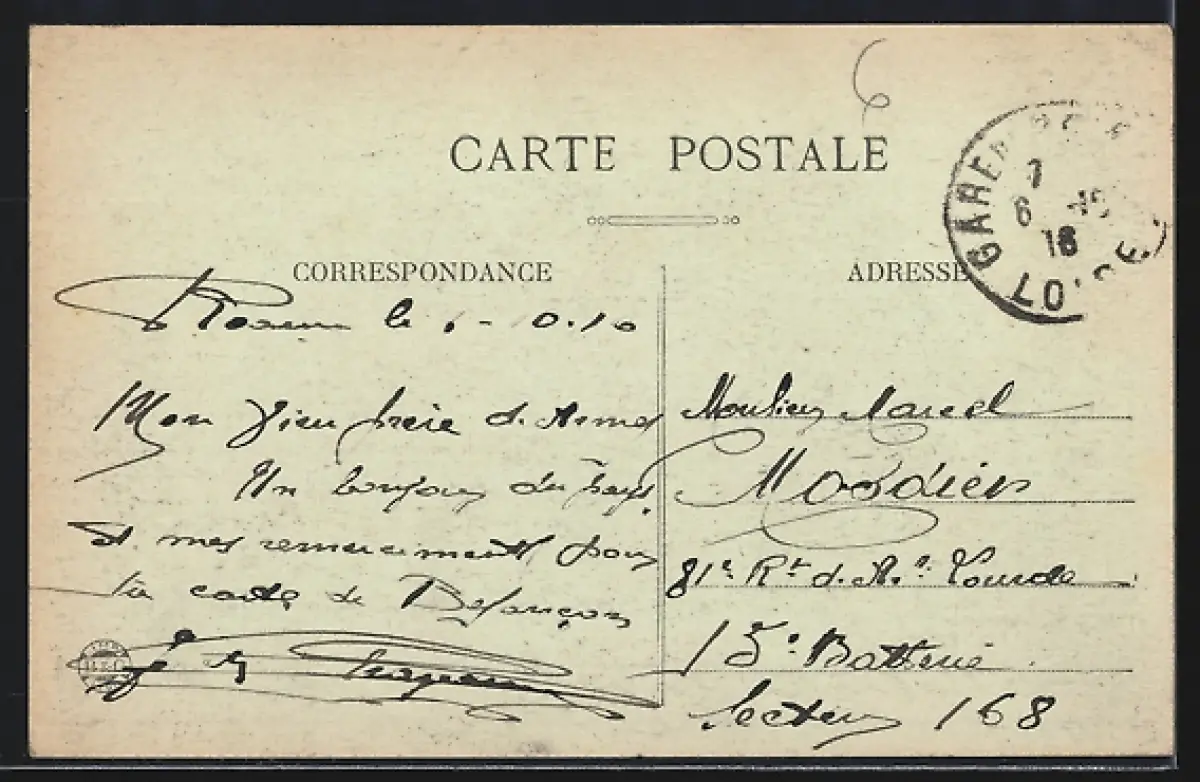 6
CARTE POSTALE
CORRESPONDANCE
ADRESSE
GARE
7
6
16
LOT
le - 10.16
Mon Vieux frère d'Armes
Un bonjour du pays
et mes remerciments pour
ta carte de Besançon
Moulieu Marcel
81e Rt d. Ar. Lourde
15e Batterie
Secteur 168